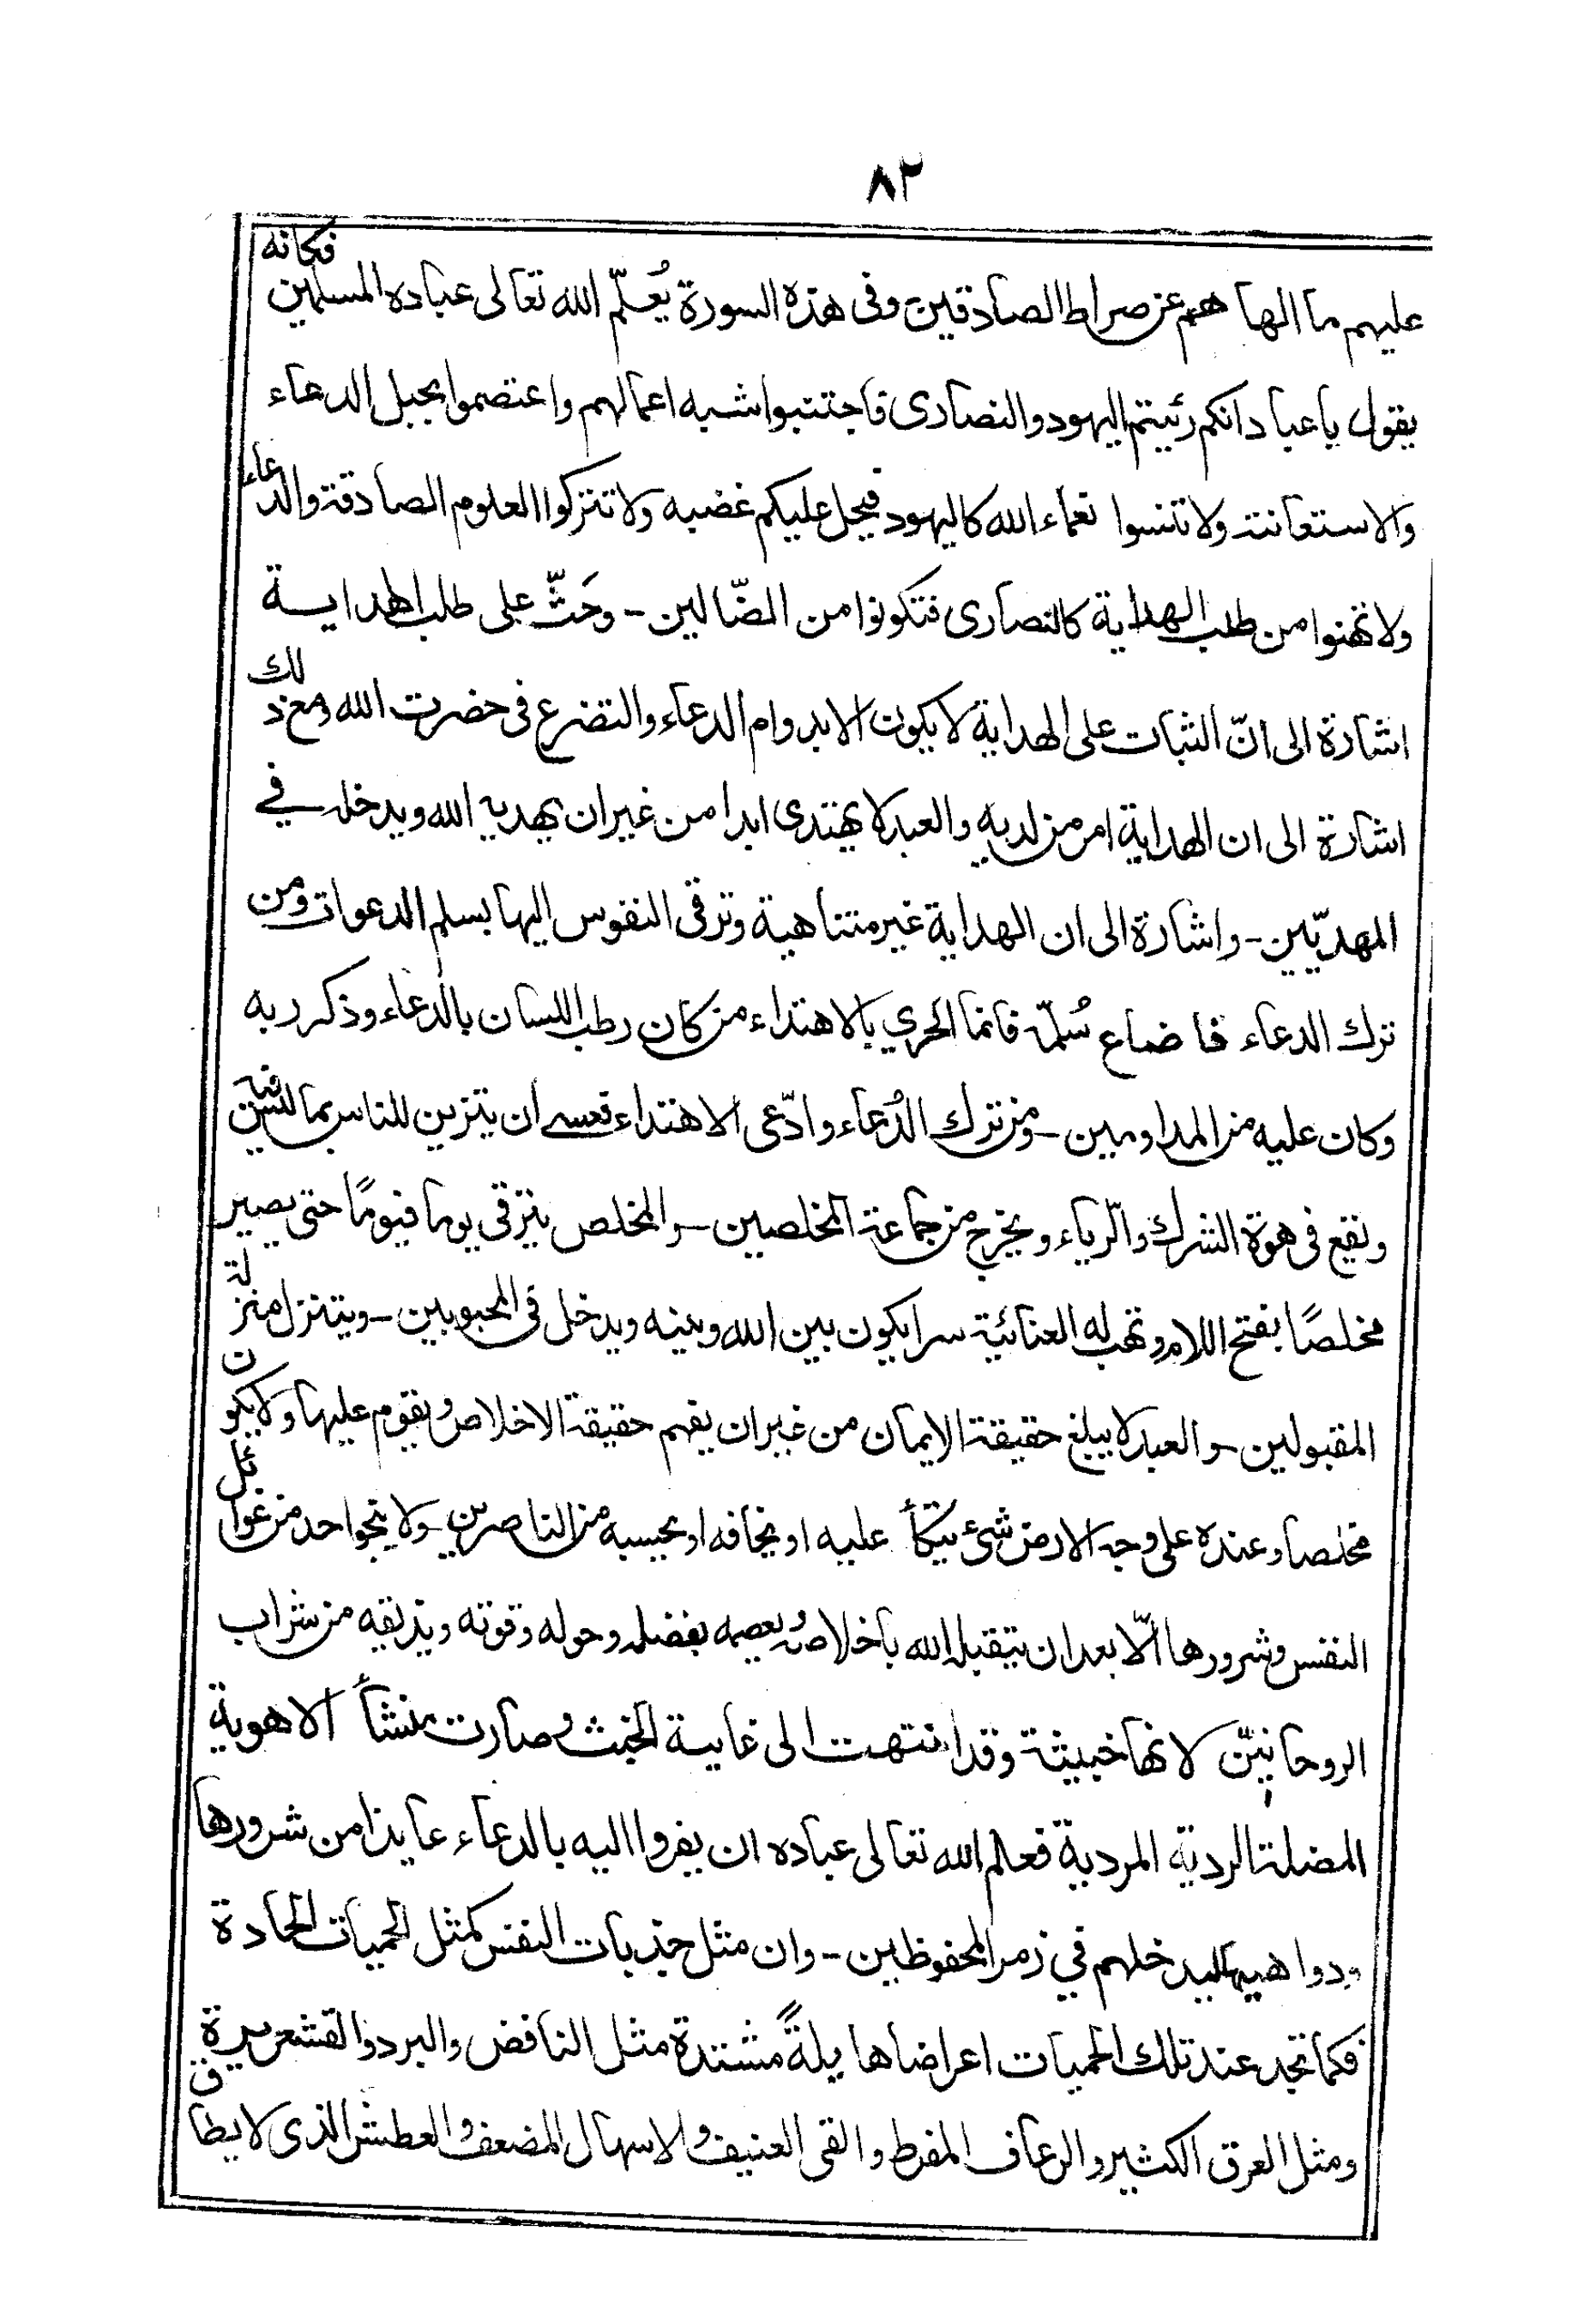 ٨٢
عليهم ما الهاهم عن صراط الصادقين وفى هذه السورة يُعلّم الله تعالى عباده المسلمين فكانه
يقول يا عباد انكم رئيتم اليهود والنصارى فاجتنبوا شبه اعمالهم واعتصموا بحبل الدعاء
والاستعانة ولا تنسوا نعماء الله كاليهود فيحل عليكم غضبه ولا تتركوا العلوم الصادقة والدعاء
ولا تهنوا من طلب الهداية كالنصارى فتكونوا من الضّالين - وحَثّ على طلب الهداية
اشارة الى انّ الثبات على الهداية لا يكون الا بدوام الدعاء والتضرع فى حضرت الله ومع ذلك
اشارة الى ان الهداية امر من لديه والعبد لا يهتدى ابدا من غير ان يهديه الله ويدخله في
المهديّين - واشارة الى ان الهداية غير متناهية وترقى النفوس اليها بسلم الدعوات ومن
ترك الدعاء فاضاع سُلمّه فانما الحري بالاهتداء من كان رطب اللسان بالدعاء وذكر ربه
وكان عليه من المداومين - ومن ترك الدُعاء وادّعى الاهتداء فعسى ان يتزين للناس بما ليس فيه
ويقع فى هوة الشرك والرّياء ويخرج من جماعة المخلصين - والمخلص يترقى يوما فيومًا حتى يصير
مخلصًا بفتح اللام وتهب له العناية سرا يكون بين الله وبينه ويدخل فى المحبوبين - ويتنزل منزلة
المقبولين - والعبد لا يبلغ حقيقة الايمان من غير ان يفهم حقيقة الاخلاص ويقوم عليها ولا يكون
مخلصا وعنده على وجه الارض شئ يتكأ عليه او يخافه او يحسبه من الناصرين - ولا ينجوا احد من غوائل
النفس وشرورها الّا بعد ان يتقبله الله باخلاصه ويعصمه بفضله وحوله وقوته ويذيقه من شراب
الروحانيّين لانها خبيثة وقد انتهت الى غاية الخبث وصارت منشأ الاهوية
المضلة الردية المردية فعلم الله تعالى عباده ان يفروا اليه بالدعاء عايذا من شرورها
ودواهيها ليدخلهم في زمر المحفوظين - وان مثل جذبات النفس كمثل الحميات الحادة
فكما تجد عند تلك الحميات اعراضا هايلةً مشتدة مثل النافض والبرد والقشعريرة
ومثل العرق الكثير والرعاف المفرط والقى العنيف والاسهال المضعف والعطش الذى لا يطاق